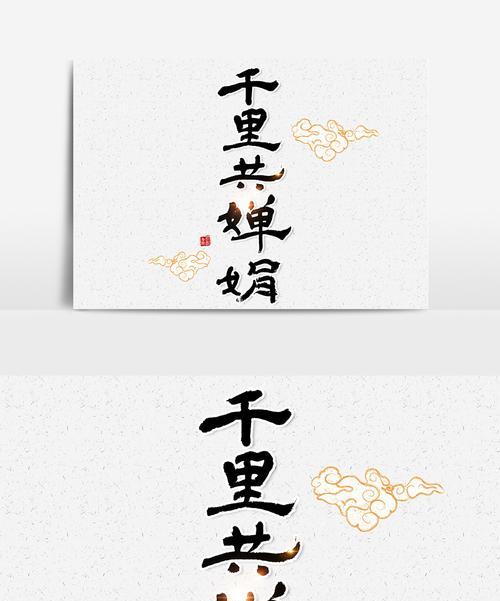 千里共婵娟
千里共